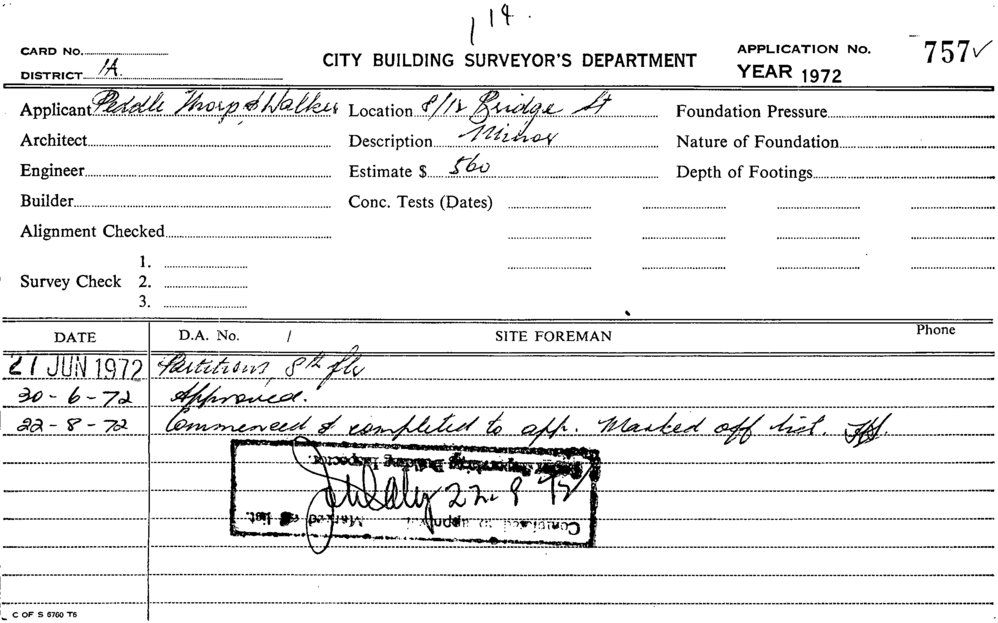 114.
CARD No.
DISTRICT 1A.
CITY BUILDING SURVEYOR'S DEPARTMENT
APPLICATION No. 757✓
YEAR 1972
Applicant Peddle Thorp & Walker
Location 8/12 Bridge St
Foundation Pressure
Architect
Description Minor
Nature of Foundation
Engineer
Estimate $ 560
Depth of Footings
Builder
Conc. Tests (Dates)
Alignment Checked
Survey Check 1.
2.
3.
DATE D.A. No. / SITE FOREMAN Phone
21 JUN 1972 Partitions, 8th flr
30-6-72 Approved.
22-8-72 Commenced & completed to app. Marked off list.
Supervising Building Inspector.
22.8.72
Completed to approval. Marked off list.
C OF S 6760 T6